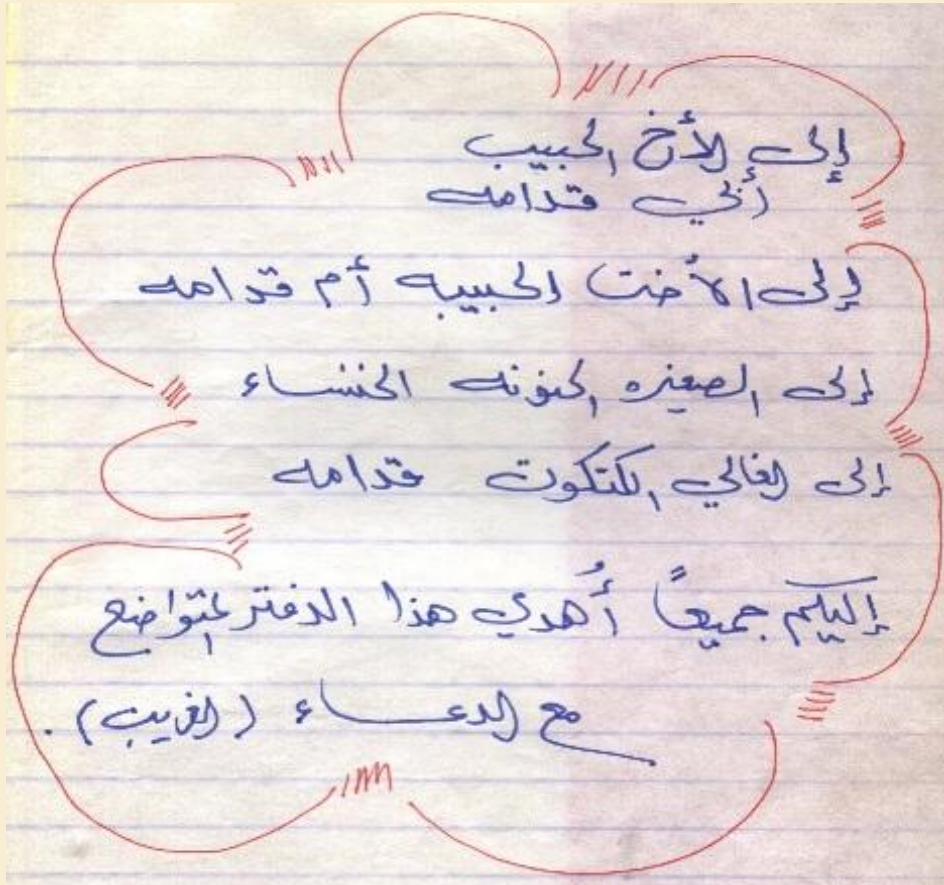 إلى الأخ الحبيب
أبي قدامه
إلى الأخت الحبيبه أم قدامه
إلى الصغيره الحنونه الخنساء
إلى الغالي الكتكوت قدامه
إليكم جميعاً أُهدي هذا الدفتر المتواضع
مع الدعـــاء (الغريب).